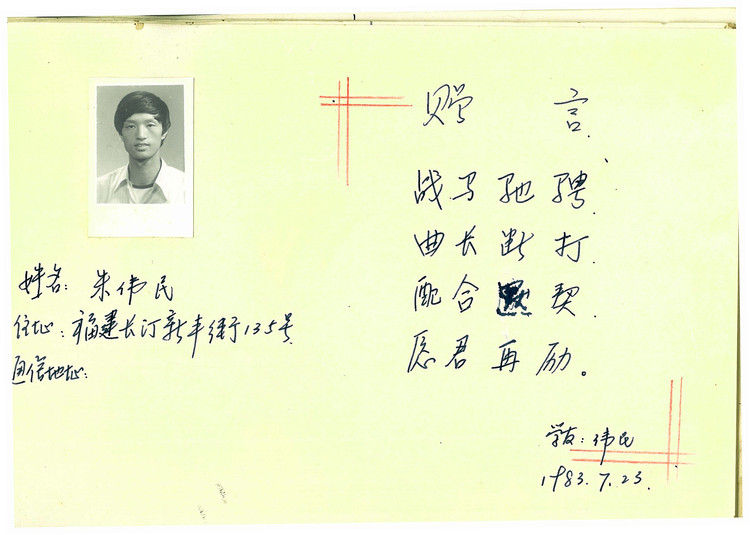 姓名：朱伟民
住址：福建长汀新丰街135号
通信地址：
赠言
战马驰骋
曲长断打
配合默契
愿君再励。
学友：伟民
1983.7.23.